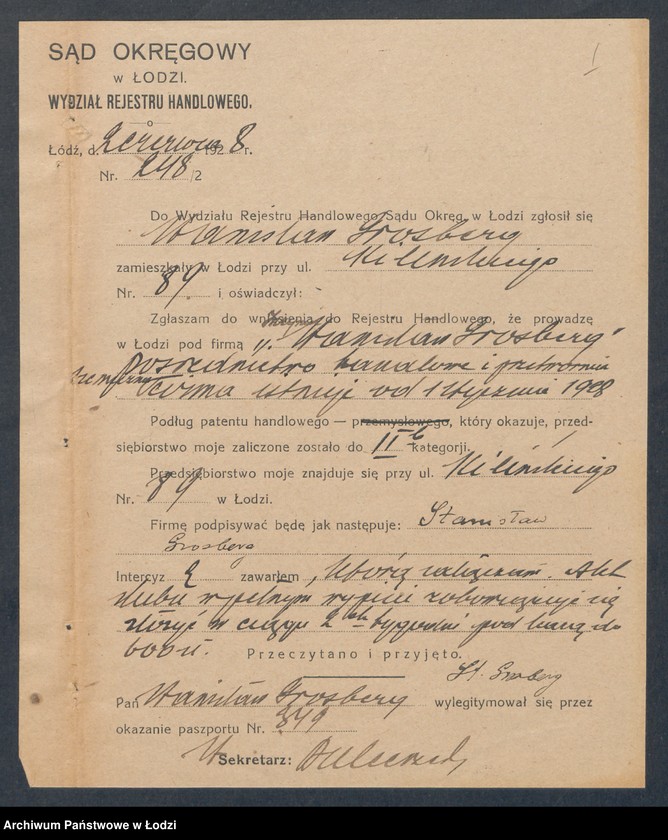 SĄD OKRĘGOWY
w ŁODZI.
WYDZIAŁ REJESTRU HANDLOWEGO.
Łódź, d. 2 czerwca 1928 r.
Nr. 248/2
Do Wydziału Rejestru Handlowego Sądu Okręg. w Łodzi zgłosił się
Stanisław Grosberg
zamieszkały w Łodzi przy ul. Kilińskiego
Nr. 89 i oświadczył:
Zgłaszam do wniesienia do Rejestru Handlowego, że prowadzę
w Łodzi pod firmą „Stanisław Grosberg"
pośrednictwo handlowe i przetwornia
Firma istnieje od 1 stycznia 1928
Podług patentu handlowego — przemysłowego, który okazuje, przed-
siębiorstwo moje zaliczone zostało do II b kategorji.
Przedsiębiorstwo moje znajduje się przy ul. Kilińskiego
Nr. 89 w Łodzi.
Firmę podpisywać będę jak następuje: Stanisław
Grosberg
Intercyz ę zawarłem, którą załączam. Akt
ślubu w pełnym wypisie zobowiązuję się
złożyć w ciągu 2ch tygodni pod karą do
600 zł.
Przeczytano i przyjęto.
St. Grosberg
Pan Stanisław Grosberg wylegitymował się przez
okazanie paszportu Nr. 349
Sekretarz:
Archiwum Państwowe w Łodzi